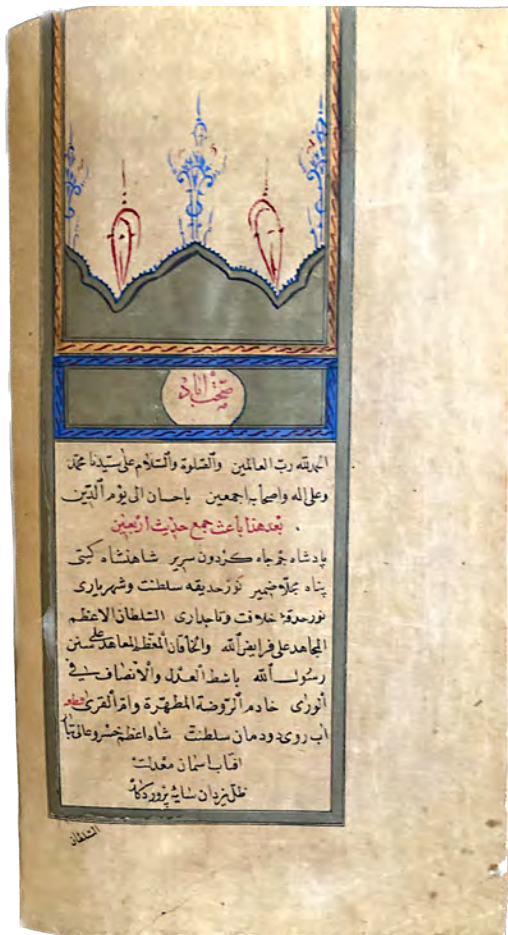 صحت اباد
الحمد لله رب العالمين والصلوة والسلام على سيدنا محمد
وعلى اله واصحابه اجمعين باحسان الى يوم الدين
بعد هذا باعث جمع حديث اربعين
پادشاه جم جاه كردون سرير شاهنشاه كيتى
پناه مجلا ضمير نور حديقه سلطنت وشهريارى
نور حدقهٔ خلافت وتاجدارى السلطان الاعظم
المجاهد على فرايض الله والخاقان المعظم المعاهد على سنن
رسول الله باسط العدل والانصاف فى
الورى خادم الروضة المطهرة وام القرى قطعه
اب روى دودمان سلطنت شاه اعظم خسرو عالى تبار
افتاب اسمان معدلت
ظل يزدان سايهٔ پروردكار
السلطان